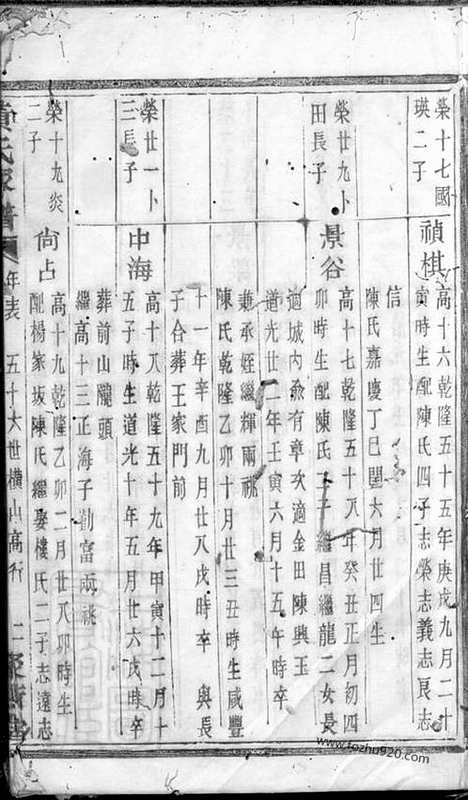 榮十七國
瑛二子
禎棋
高十六乾隆五十五年庚戌九月二十
寅時生配陳氏四子志榮志義志良志
信
陳氏嘉慶丁巳閏六月廿四生
榮廿九卜
田長子
景谷
高十七乾隆五十八年癸丑正月初四
卯時生配陳氏二子繼昌繼龍二女長
適城內俞有章次適金田陳興玉
道光廿二年壬寅六月十五午時卒
兼承姪繼輝兩祧
陳氏乾隆乙卯十月廿三丑時生咸豐
十一年辛酉九月廿八戌時卒 與長
子合葬王家門前
榮廿一卜
三長子
中海
高十八乾隆五十九年甲寅十二月十
五子時生道光十年五月廿六戌時卒
葬前山隴頭
繼高十三正海子勛富兩祧
榮十九炎
二子
尚占
高十九乾隆乙卯二月廿八卯時生
配楊家坂陳氏繼娶樓氏二子志遠志
黃氏家譜
年表
五十六世橫山高行
二
www.tozhu920.com